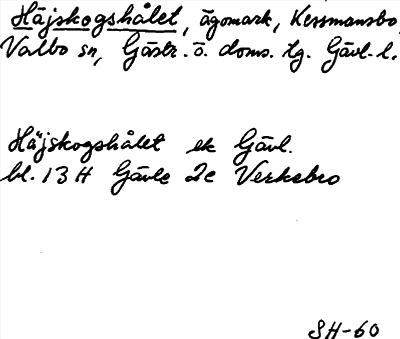 Häjskogshålet, ägomark, Kessmansbo,
Valbo sn, Gästr. ö. doms. tg. Gävl. l.
Häjskogshålet ek Gävl.
bl. 13 H Gävle 2c Verkebro
SH-60